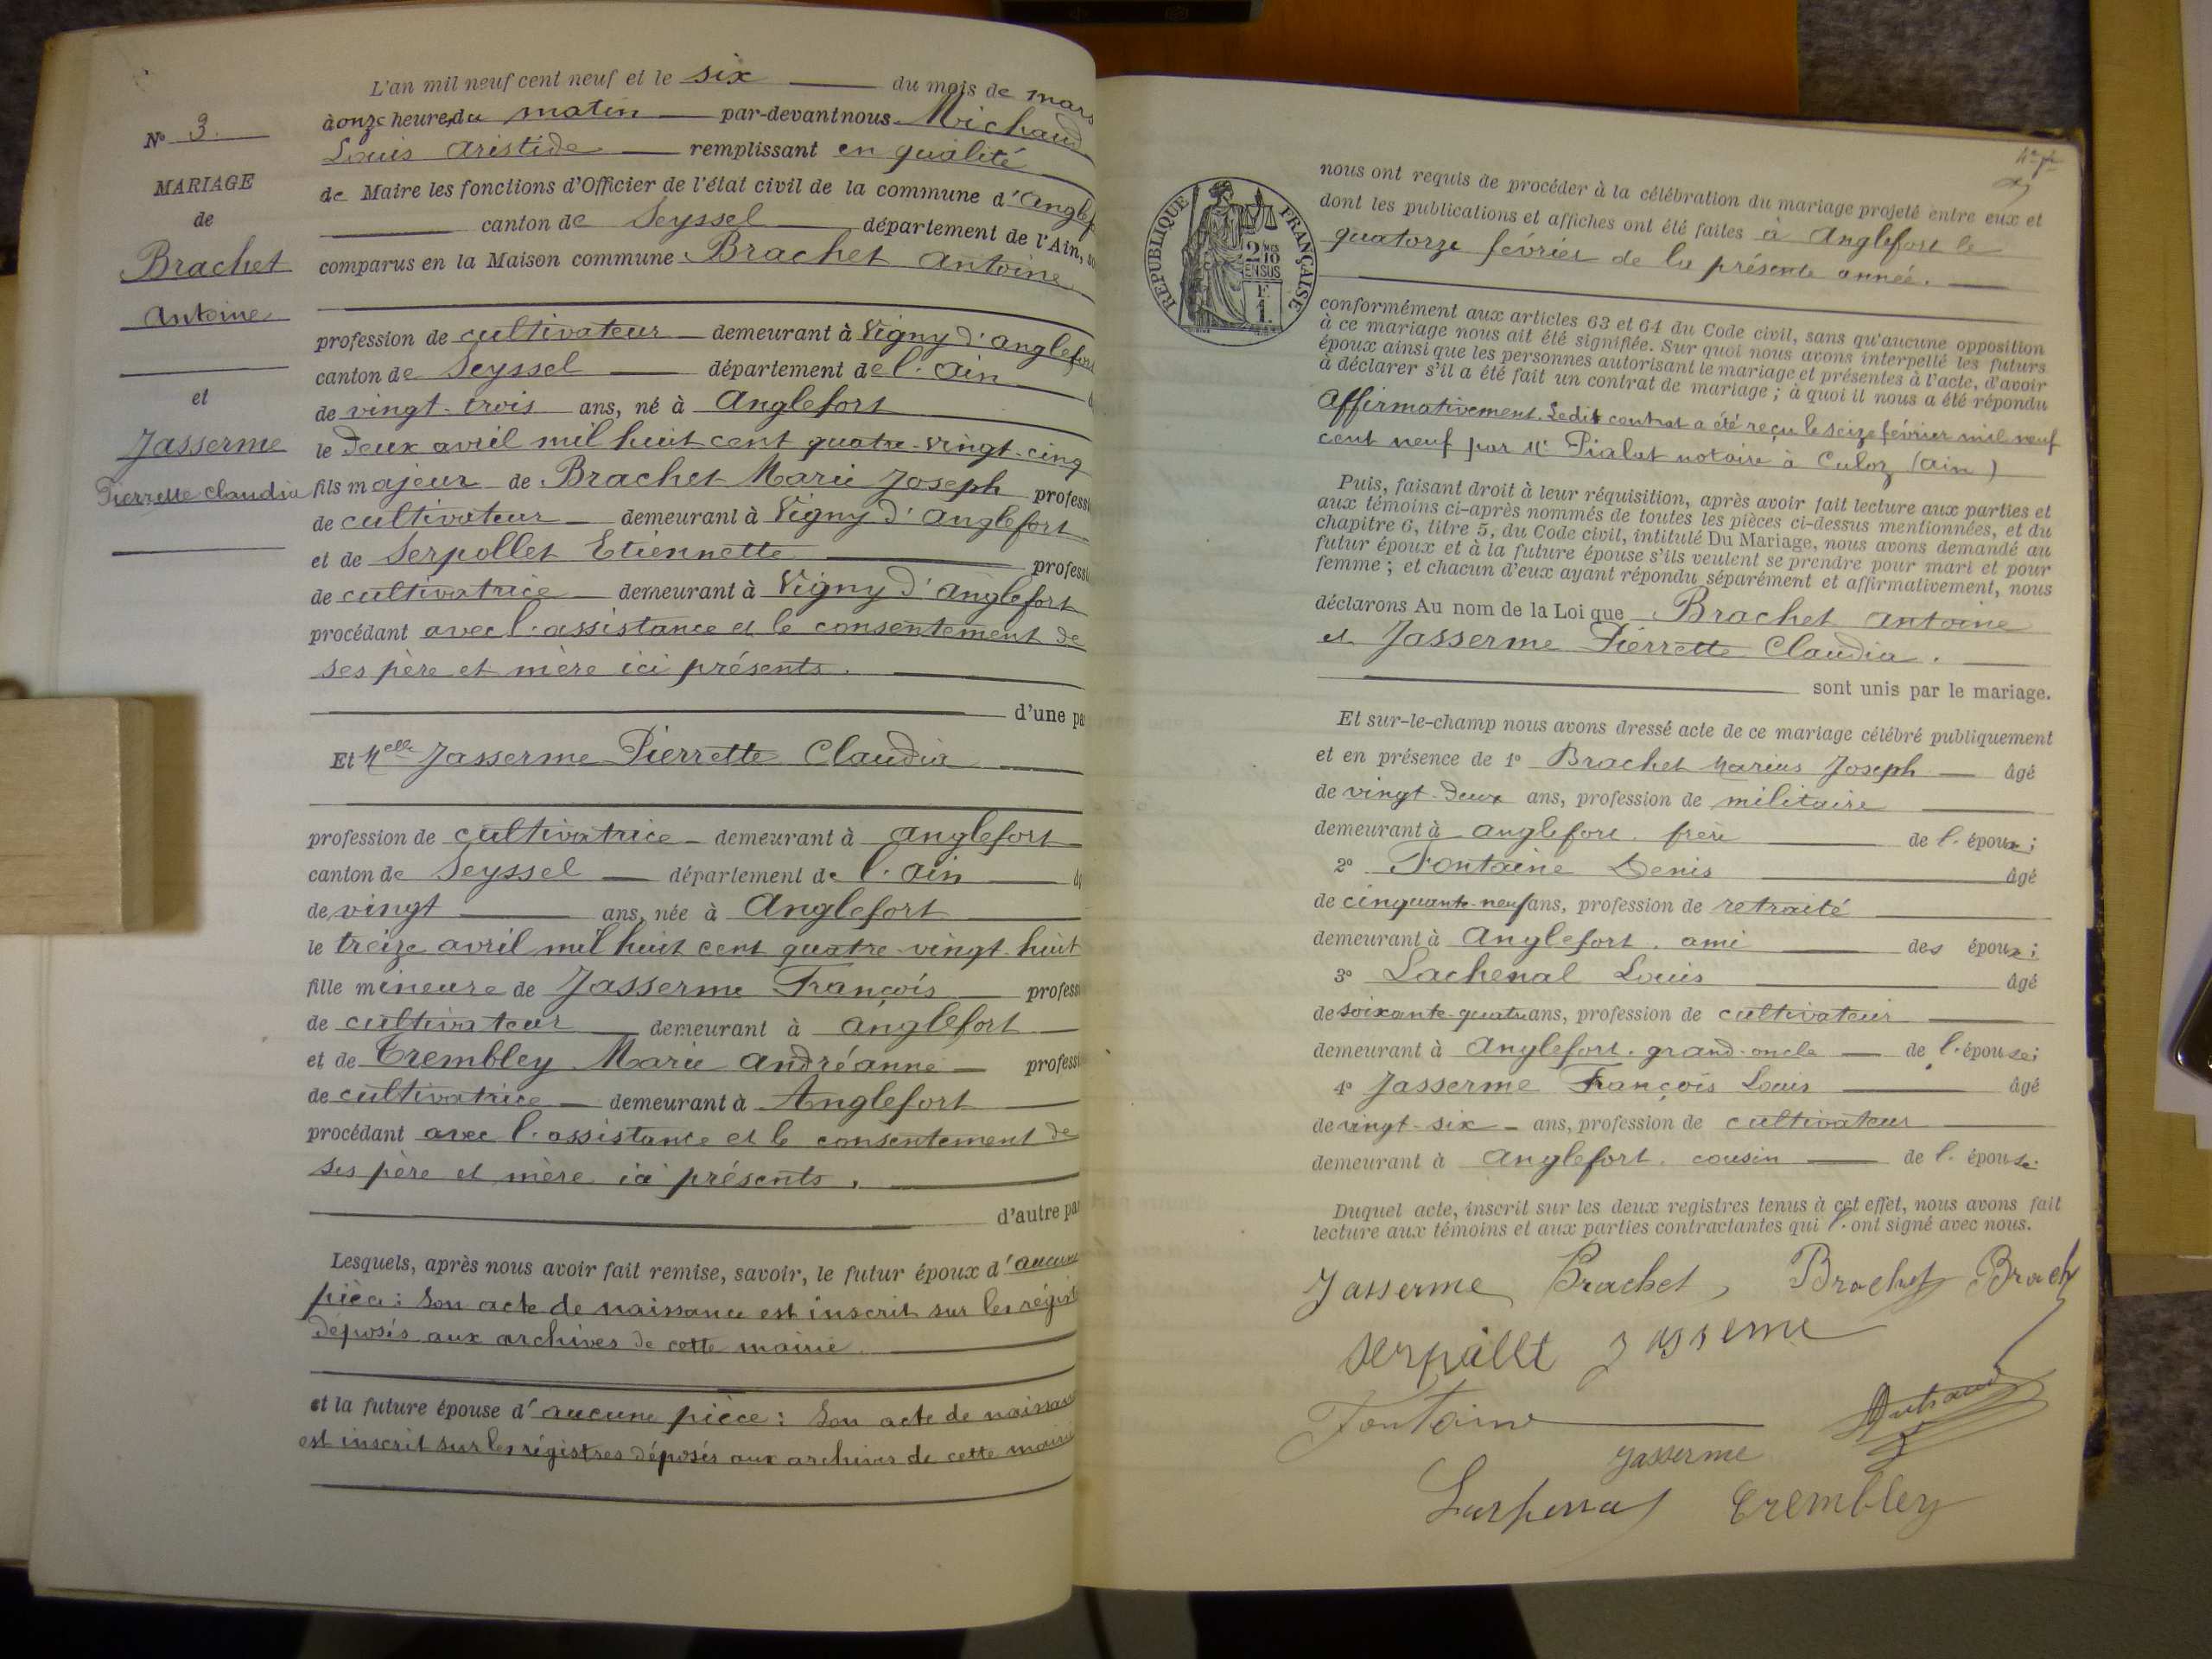 L'an mil neuf cent neuf et le six du mois de mars
à onze heures du matin par-devant nous Michaud
Louis Aristide remplissant en qualité
de Maire les fonctions d'Officier de l'état civil de la commune d'Anglef
canton de Seyssel département de l'Ain, so
comparus en la Maison commune Brachet Antoine
profession de cultivateur demeurant à Vigny d'Anglefort
canton de Seyssel département de l'Ain
de vingt-trois ans, né à Anglefort
le deux avril mil huit cent quatre-vingt-cinq
fils majeur de Brachet Marie Joseph professi
de cultivateur demeurant à Vigny d'Anglefort
et de Serpollet Etiennette professi
de cultivatrice demeurant à Vigny d'Anglefort
procédant avec l'assistance et le consentement de
ses père et mère ici présents.
d'une pa
Et Melle Jasserme Pierrette Claudia
profession de cultivatrice demeurant à Anglefort
canton de Seyssel département de l'Ain
de vingt ans, née à Anglefort
le treize avril mil huit cent quatre-vingt-huit
fille mineure de Jasserme François professi
de cultivateur demeurant à Anglefort
et de Trembley Marie Andréanne professi
de cultivatrice demeurant à Anglefort
procédant avec l'assistance et le consentement de
ses père et mère ici présents.
d'autre pa
Lesquels, après nous avoir fait remise, savoir, le futur époux d'aucune
pièce: Son acte de naissance est inscrit sur les régist
déposés aux archives de cette mairie
et la future épouse d'aucune pièce: Son acte de naissan
est inscrit sur les régistres déposés aux archives de cette mairie
N° 3.
MARIAGE
de
Brachet
Antoine
et
Jasserme
Pierrette Claudia
RÉPUBLIQUE FRANÇAISE
2 MES
10
EN SUS
F.
1.
nous ont requis de procéder à la célébration du mariage projeté entre eux et
dont les publications et affiches ont été faites à Anglefort le
quatorze février de la présente année.
conformément aux articles 63 et 64 du Code civil, sans qu'aucune opposition
à ce mariage nous ait été signifiée. Sur quoi nous avons interpellé les futurs
époux ainsi que les personnes autorisant le mariage et présentes à l'acte, d'avoir
à déclarer s'il a été fait un contrat de mariage ; à quoi il nous a été répondu
Affirmativement. Ledit contrat a été reçu le seize février mil neuf
cent neuf par Me Pialat notaire à Culoz (Ain)
Puis, faisant droit à leur réquisition, après avoir fait lecture aux parties et
aux témoins ci-après nommés de toutes les pièces ci-dessus mentionnées, et du
chapitre 6, titre 5, du Code civil, intitulé Du Mariage, nous avons demandé au
futur époux et à la future épouse s'ils veulent se prendre pour mari et pour
femme ; et chacun d'eux ayant répondu séparément et affirmativement, nous
déclarons Au nom de la Loi que Brachet Antoine
et Jasserme Pierrette Claudia.
sont unis par le mariage.
Et sur-le-champ nous avons dressé acte de ce mariage célébré publiquement
et en présence de 1° Brachet Marius Joseph âgé
de vingt-deux ans, profession de militaire
demeurant à Anglefort. frère de l'époux ;
2° Fontaine Denis âgé
de cinquante-neuf ans, profession de retraité
demeurant à Anglefort. ami des époux ;
3° Lachenal Louis âgé
de soixante-quatre ans, profession de cultivateur
demeurant à Anglefort. grand-oncle de l'épouse;
4° Jasserme François Louis âgé
de vingt-six ans, profession de cultivateur
demeurant à Anglefort. cousin de l'épouse.
Duquel acte, inscrit sur les deux registres tenus à cet effet, nous avons fait
lecture aux témoins et aux parties contractantes qui l'ont signé avec nous.
Jasserme Brachet Brachet Brachet
Serpollet Jasserme
Fontaine
Jasserme
Trembley